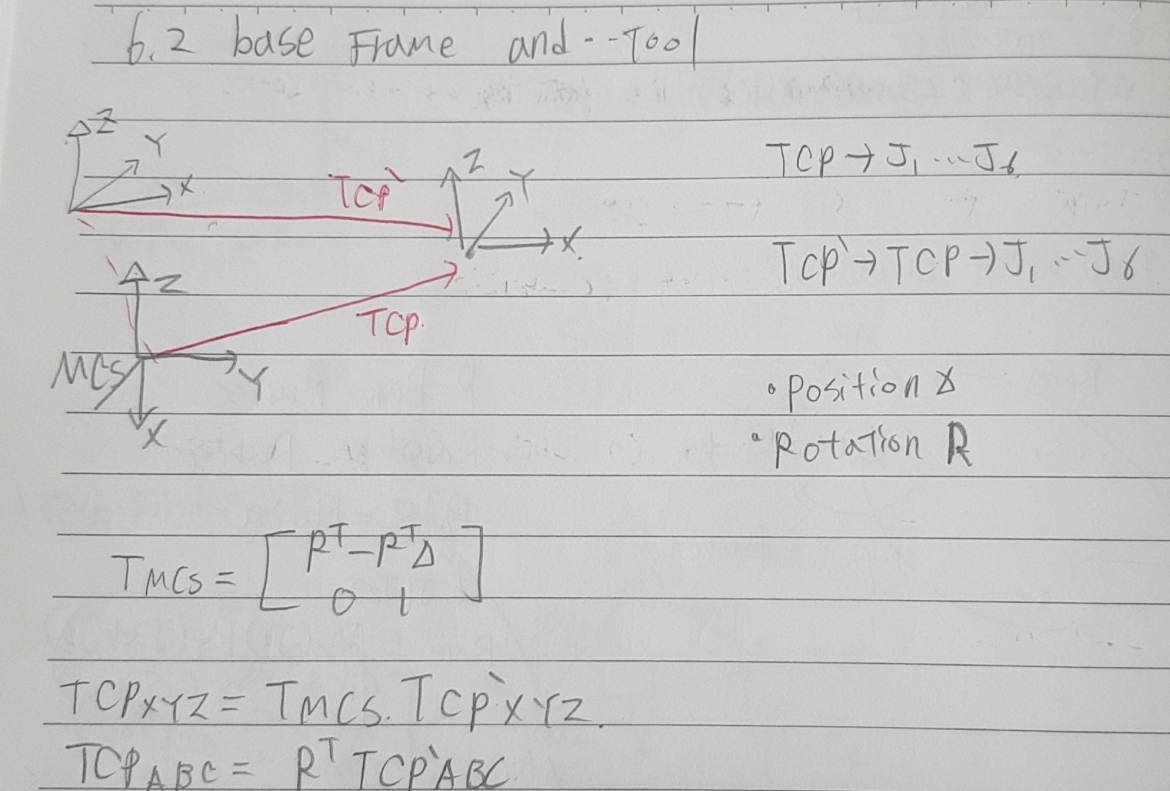 6.2 base Frame and--Tool
Z
Y
X
TCP`
Z
Y
X
TCP → J₁ ... J₆
TCP` → TCP → J₁ ... J₆
Z
TCP.
MCS
Y
X
• Position Δ
• Rotation R
T_MCS = [ Rᵀ -RᵀΔ
0 1 ]
TCP_XYZ = T_MCS. TCP`_XYZ.
TCP_ABC = Rᵀ TCP`_ABC.